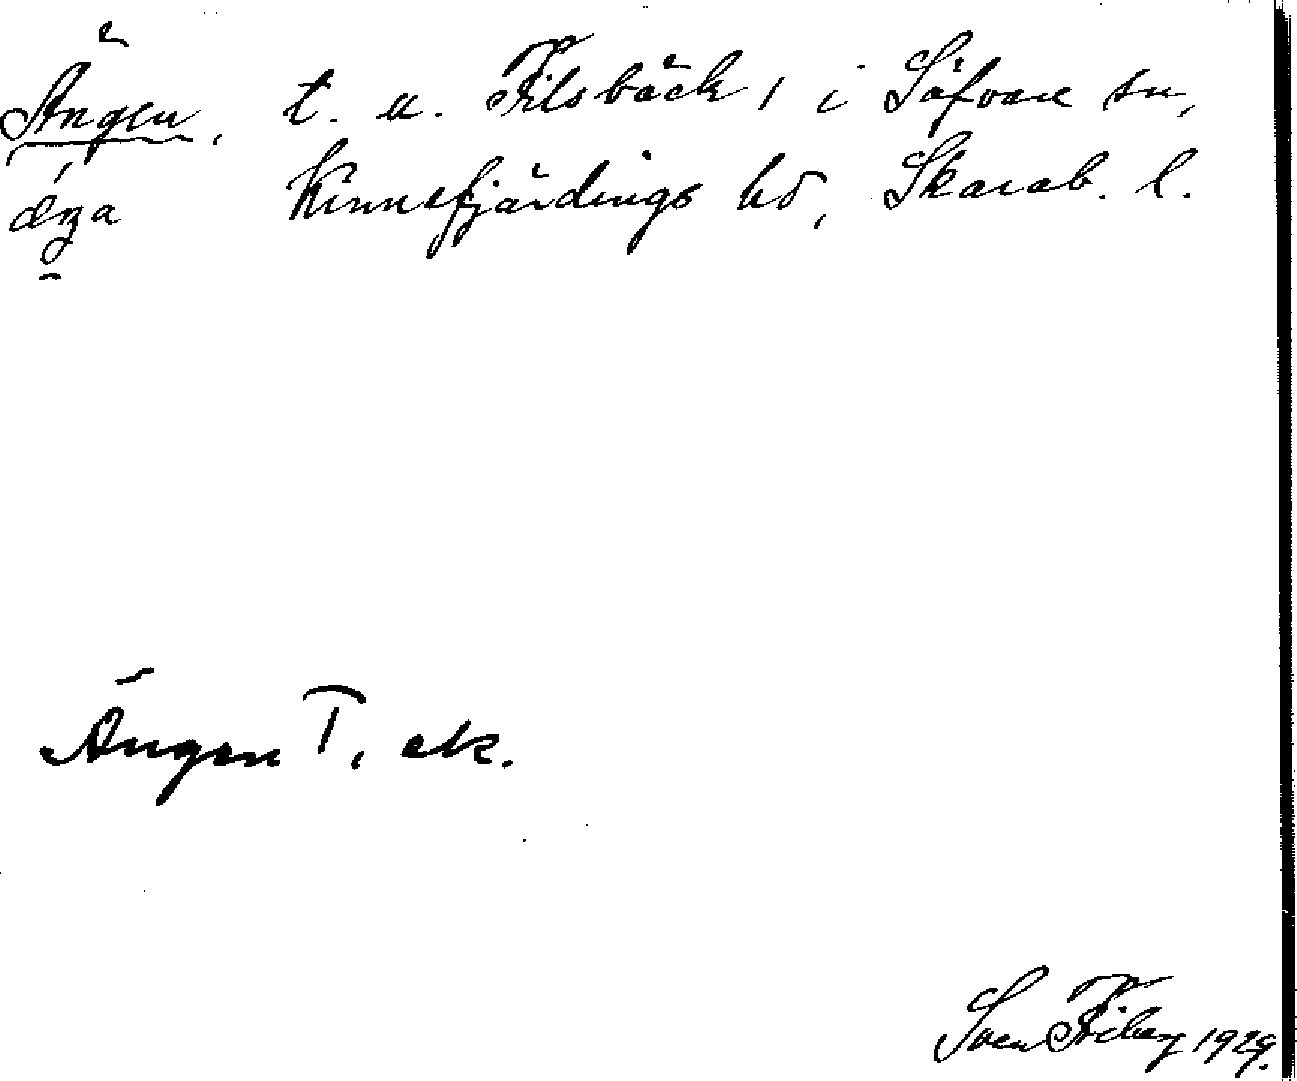 Ängen, t. u. Filsbäck 1 i Säfvare sn,
Kinnefjärdings hd, Skarab. l.
Ängen T, ek.
Sven Fiby 1929.